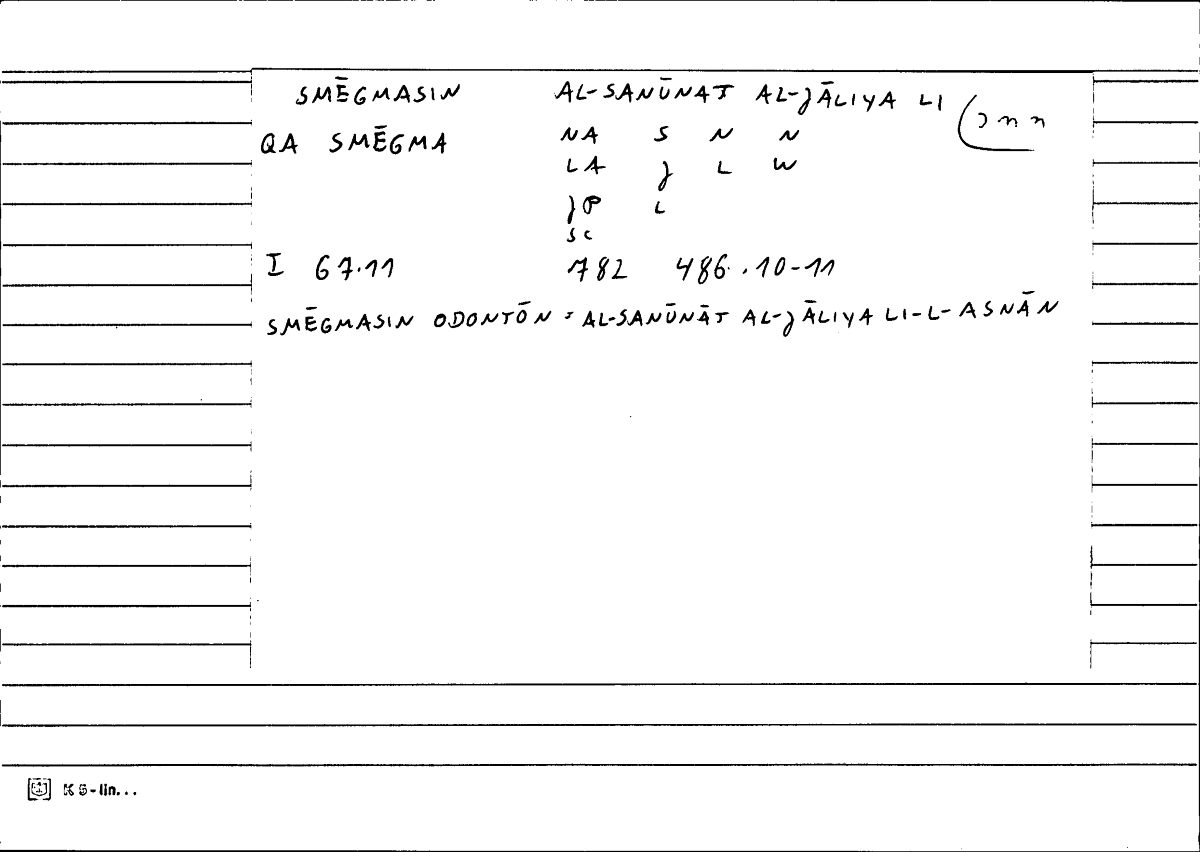 SMĒGMASIN AL-SANŪNAT AL-ȷĀLIYA LI
QA SMĒGMA NA S N N
LA ȷ L W
L
SC
I 67.11 782 486.10-11
SMĒGMASIN ODONTŌN = AL-SANŪNĀT AL-ȷĀLIYA LI-L-ASNĀN
K 5-lin...